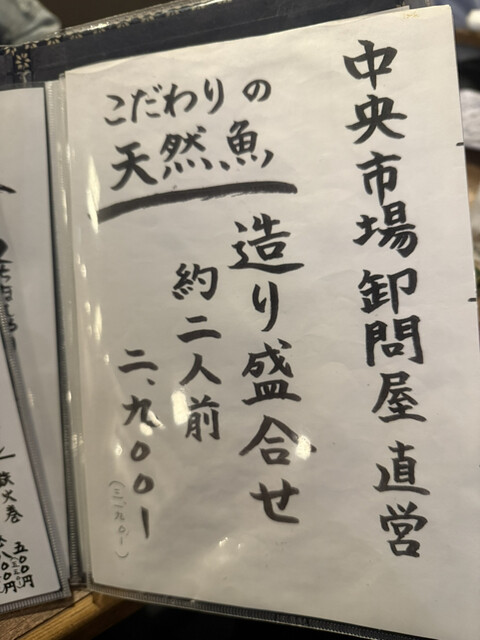 中央市場 卸問屋 直営
こだわりの
天然魚
造り盛合せ
約二人前
二、九〇〇ー
(三、一九〇ー)
鉄火巻
五〇〇円